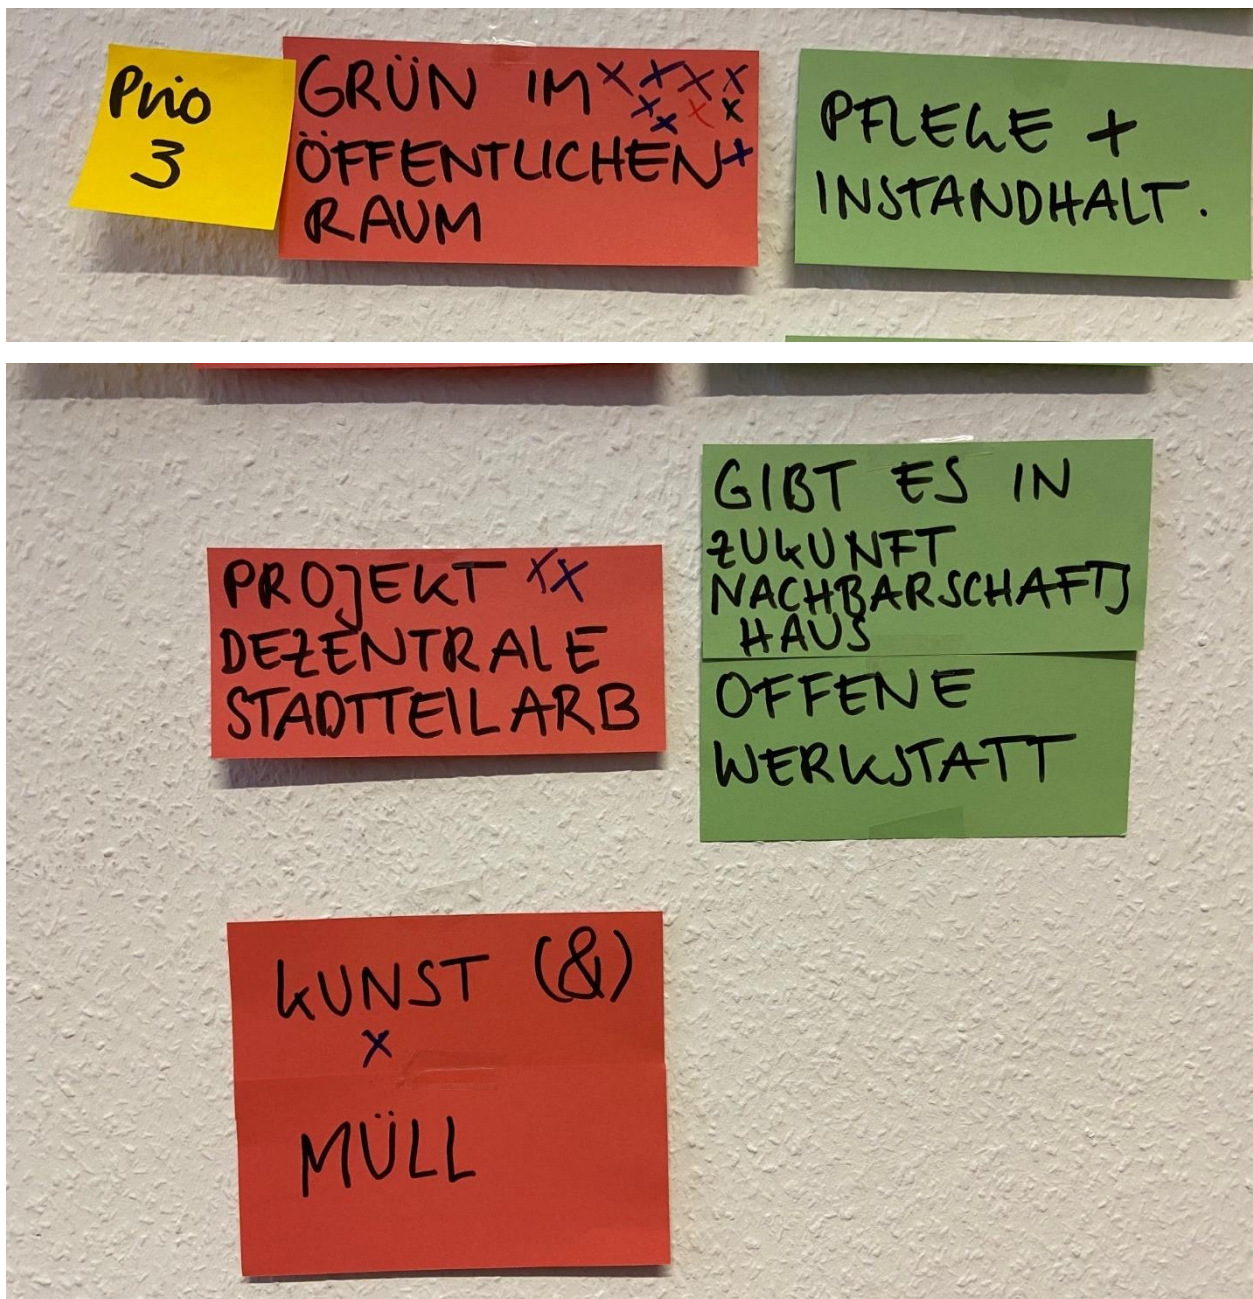 Prio
3
GRÜN IM x x x x
x x x
x
ÖFFENTLICHEN +
RAUM
PFLEGE +
INSTANDHALT.
PROJEKT xx
DEZENTRALE
STADTTEILARB
GIBT ES IN
ZUKUNFT
NACHBARSCHAFTS
HAUS
OFFENE
WERKSTATT
KUNST (&)
x
MÜLL